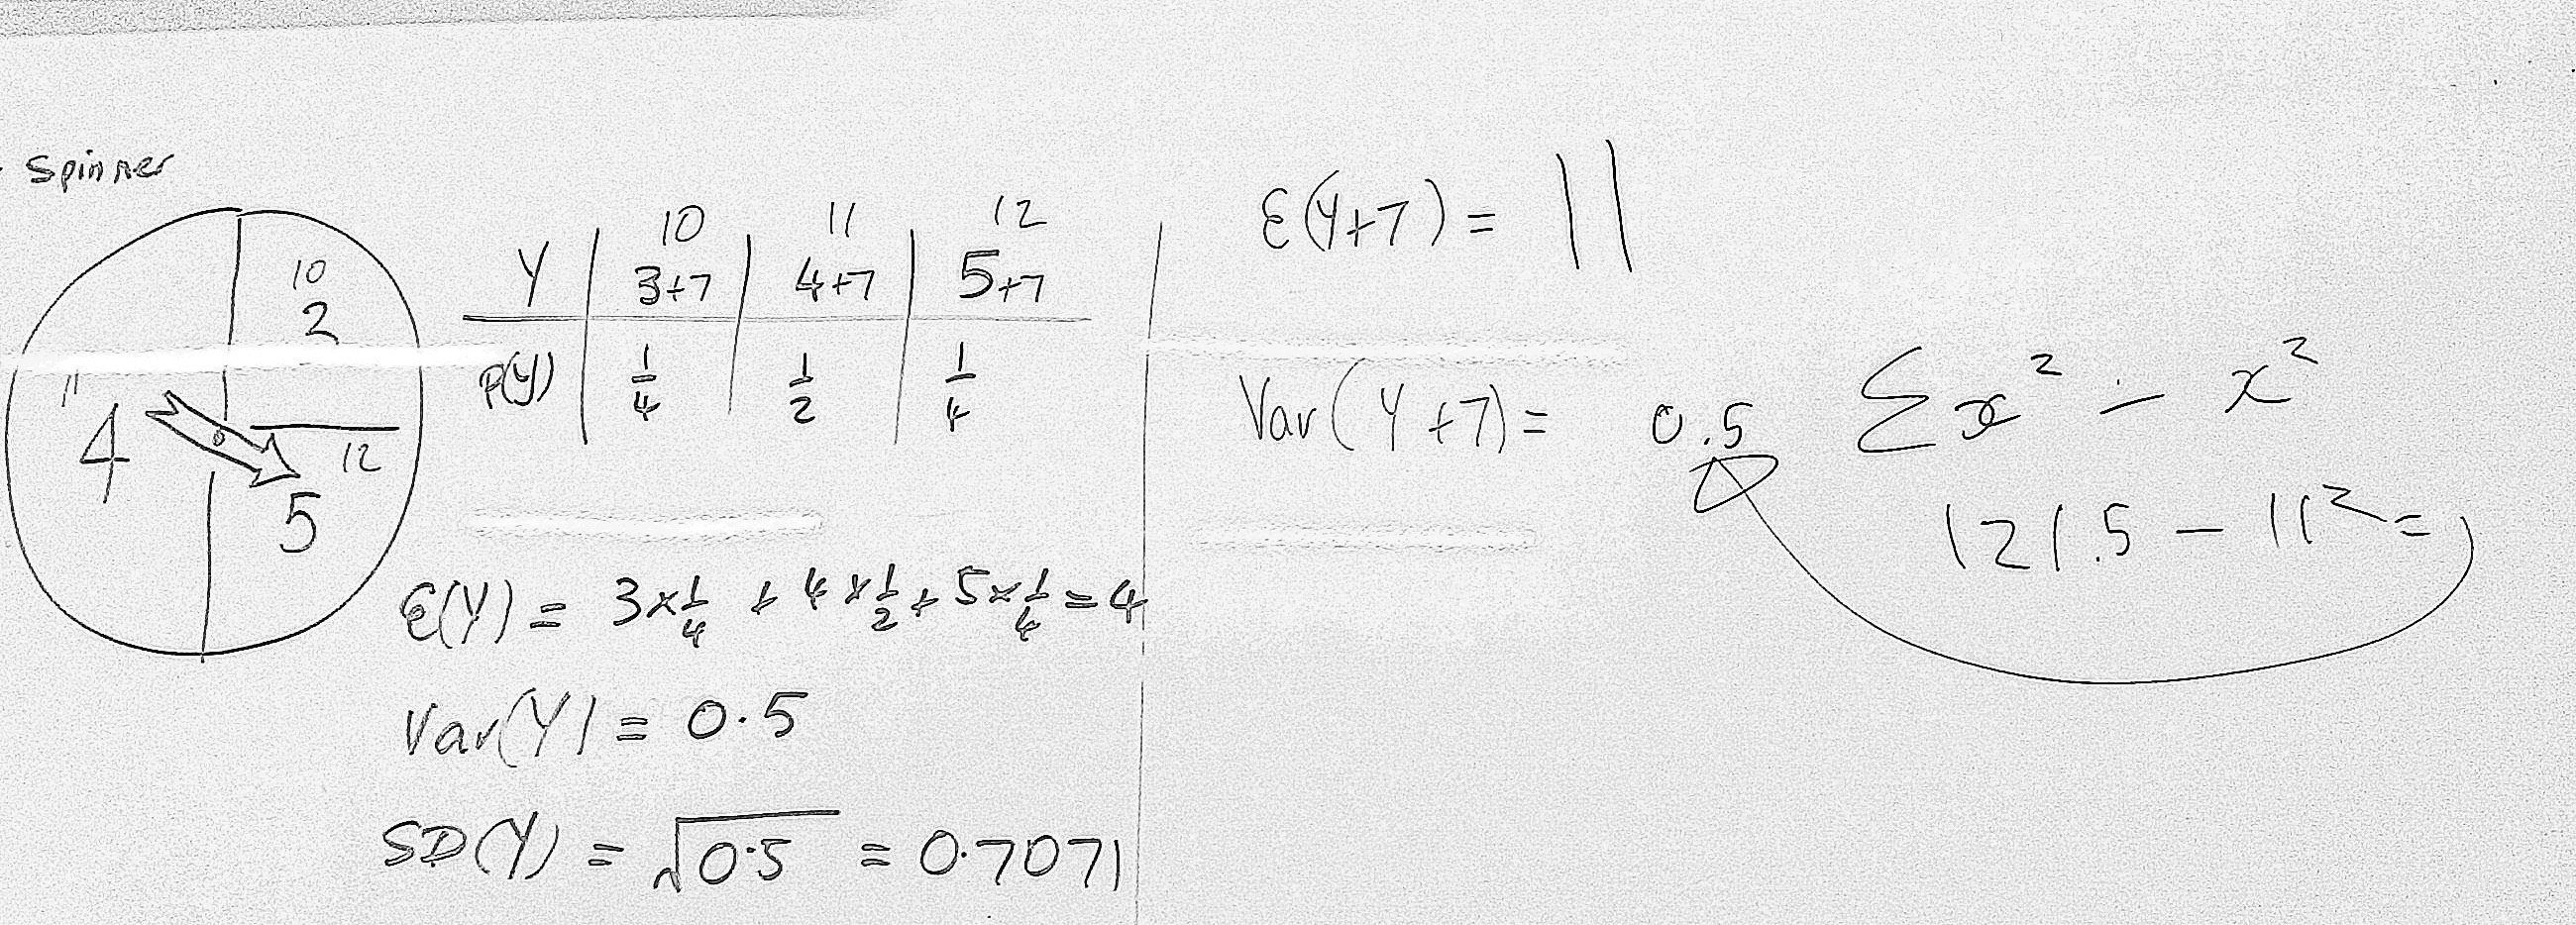 Spinner
10
2
11
4
12
5
10 11 12
Y 3+7 4+7 5+7
P(Y) 1/4 1/2 1/4
E(Y) = 3×1/4 + 4×1/2 + 5×1/4 = 4
Var(Y) = 0.5
SD(Y) = √0.5 = 0.7071
E(Y+7) = 11
Var(Y+7) = 0.5
Σx² - x²
121.5 - 11² =